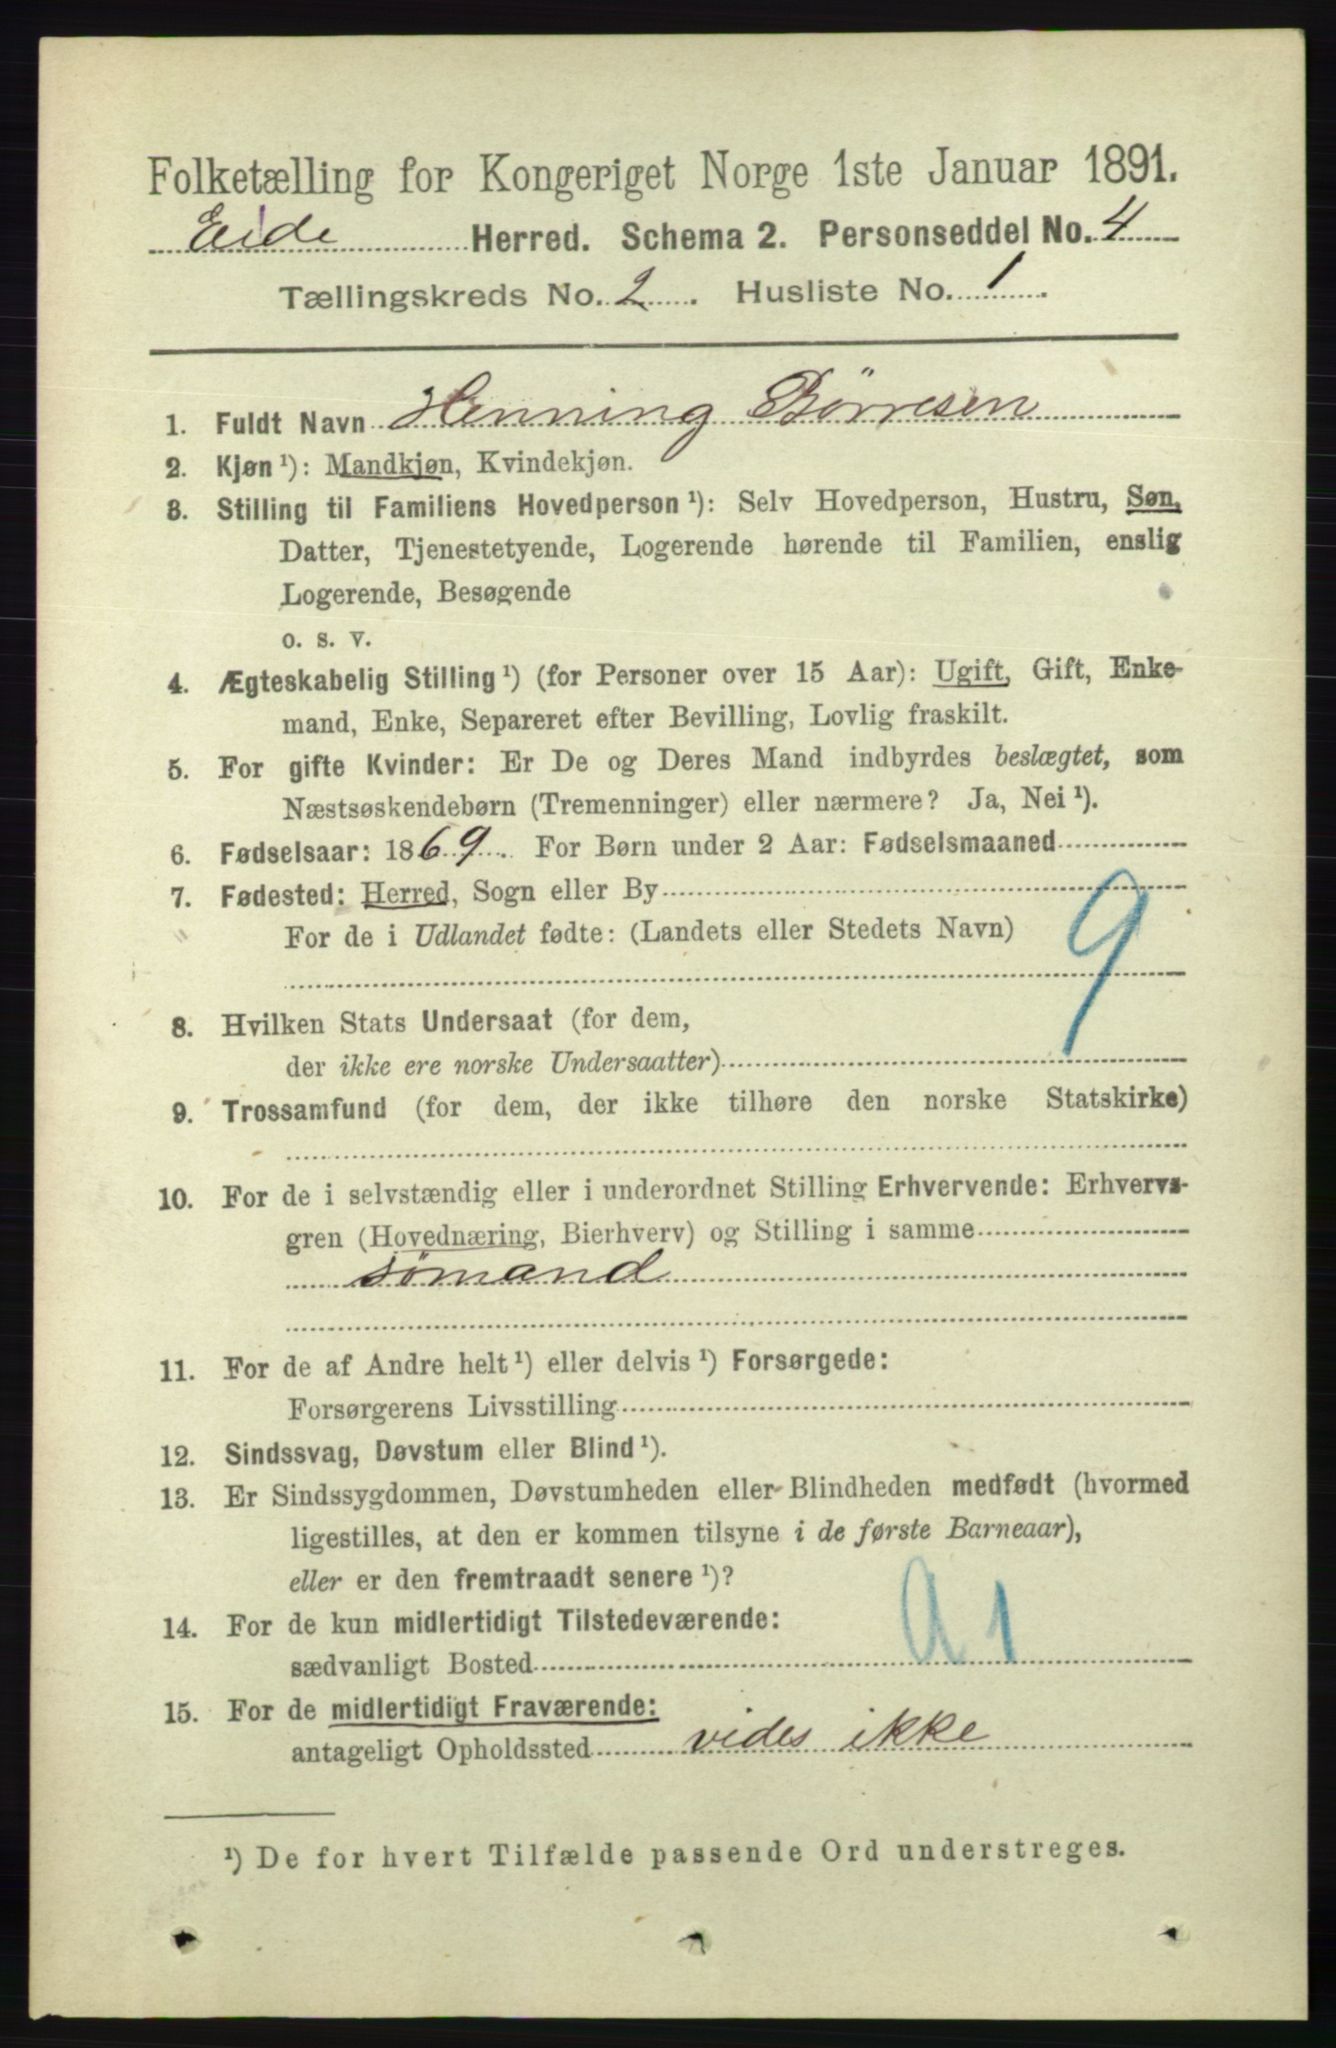 Folketælling for Kongeriget Norge 1ste Januar 1891.
Eide Herred. Schema 2. Personseddel No. 4
Tællingskreds No. 2. Husliste No. 1.
1. Fuldt Navn Henning Börresen
2. Kjøn ¹): Mandkjøn, Kvindekjøn.
3. Stilling til Familiens Hovedperson ¹): Selv Hovedperson, Hustru, Søn,
Datter, Tjenestetyende, Logerende hørende til Familien, enslig
Logerende, Besøgende
o. s. v.
4. Ægteskabelig Stilling ¹) (for Personer over 15 Aar): Ugift, Gift, Enke-
mand, Enke, Separeret efter Bevilling, Lovlig fraskilt.
5. For gifte Kvinder: Er De og Deres Mand indbyrdes beslægtet, som
Næstsøskendebørn (Tremenninger) eller nærmere? Ja, Nei ¹).
6. Fødselsaar: 1869. For Børn under 2 Aar: Fødselsmaaned
7. Fødested: Herred, Sogn eller By
For de i Udlandet fødte: (Landets eller Stedets Navn)
9
8. Hvilken Stats Undersaat (for dem,
der ikke ere norske Undersaatter)
9. Trossamfund (for dem, der ikke tilhøre den norske Statskirke)
10. For de i selvstændig eller i underordnet Stilling Erhvervende: Erhvervs-
gren (Hovednæring, Bierhverv) og Stilling i samme
sømand
11. For de af Andre helt ¹) eller delvis ¹) Forsørgede:
Forsørgerens Livsstilling
12. Sindssvag, Døvstum eller Blind ¹).
13. Er Sindssygdommen, Døvstumheden eller Blindheden medfødt (hvormed
ligestilles, at den er kommen tilsyne i de første Barneaar),
eller er den fremtraadt senere ¹)?
14. For de kun midlertidigt Tilstedeværende:
sædvanligt Bosted
a 1
15. For de midlertidigt Fraværende:
antageligt Opholdssted vides ikke
¹) De for hvert Tilfælde passende Ord understreges.